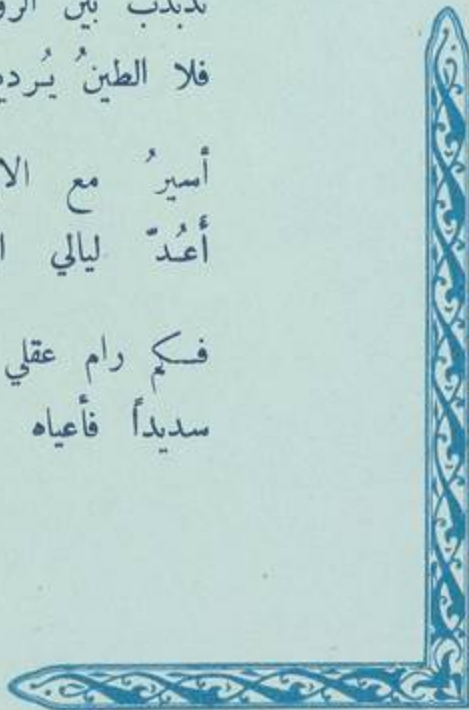 تذبذب بين
فلا الطينُ
أسيرُ مع
أعُدّ ليالي
فكم رام عقلي
سديداً فأعياه